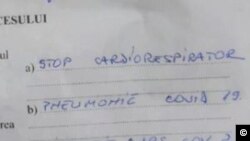 CESULUI
ul a) STOP CARDIORESPIRATOR
b) PNEUMONIE COVID 19.
rea